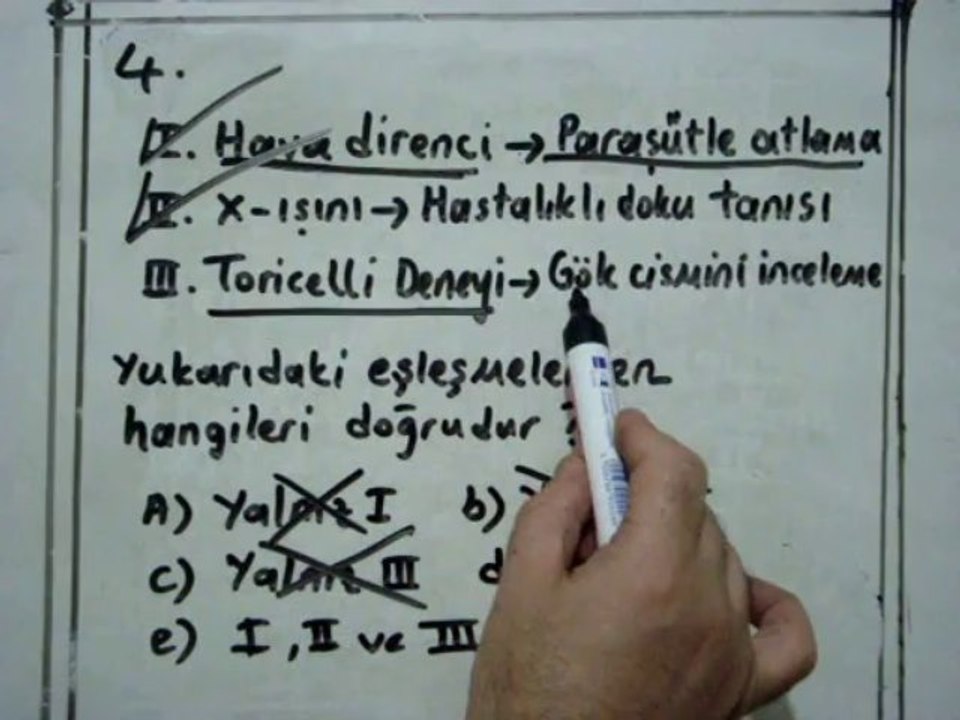 4.
I. Hava direnci → Paraşütle atlama
II. X-ışını → Hastalıklı doku tanısı
III. Toricelli Deneyi → Gök cismini inceleme
Yukarıdaki
hangileri doğrudur ?
A) Yalnız I b)
c) Yalnız III d
e) I, II ve III